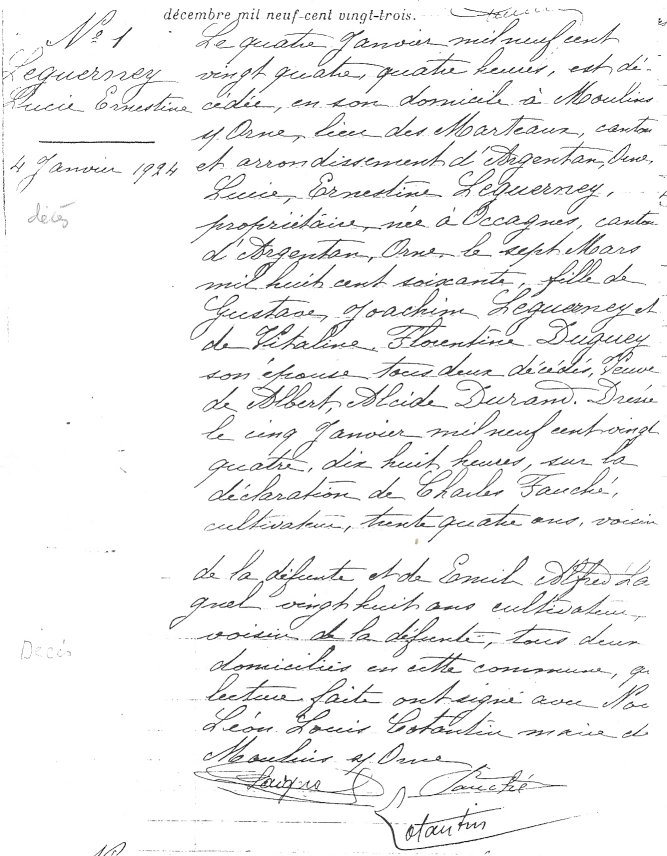 décembre mil neuf-cent vingt-trois.
No 1
Leguerney
Lucie Ernestine
4 Janvier 1924
décès
Le quatre Janvier mil neuf cent
vingt quatre, quatre heures, est dé-
cédée, en son domicile à Moulins
s/ Orne, lieu des Marteaux, canton
et arrondissement d'Argentan, Orne,
Lucie, Ernestine Leguerney,
propriétaire, née à Occagnes, canton
d'Argentan, Orne, le sept Mars
mil huit cent soixante, fille de
Gustave, Joachim Leguerney et
de Vitaline, Florentine Duguey
son épouse tous deux décédés, Veuve
de Albert, Alcide Durand. Dressé
le cinq Janvier mil neuf cent vingt
quatre, dix huit heures, sur la
déclaration de Charles Fauché,
cultivateur, trente quatre ans, voisin
de la défunte et de Emil Alfred La
gnel vingt huit ans cultivateur,
voisin de la défunte, tous deux
domiciliés en cette commune, q
lecture faite ont signé avec Nou
Léon Louis Cotantin maire de
Moulins s/ Orne
Décès
Fauché
Cotantin